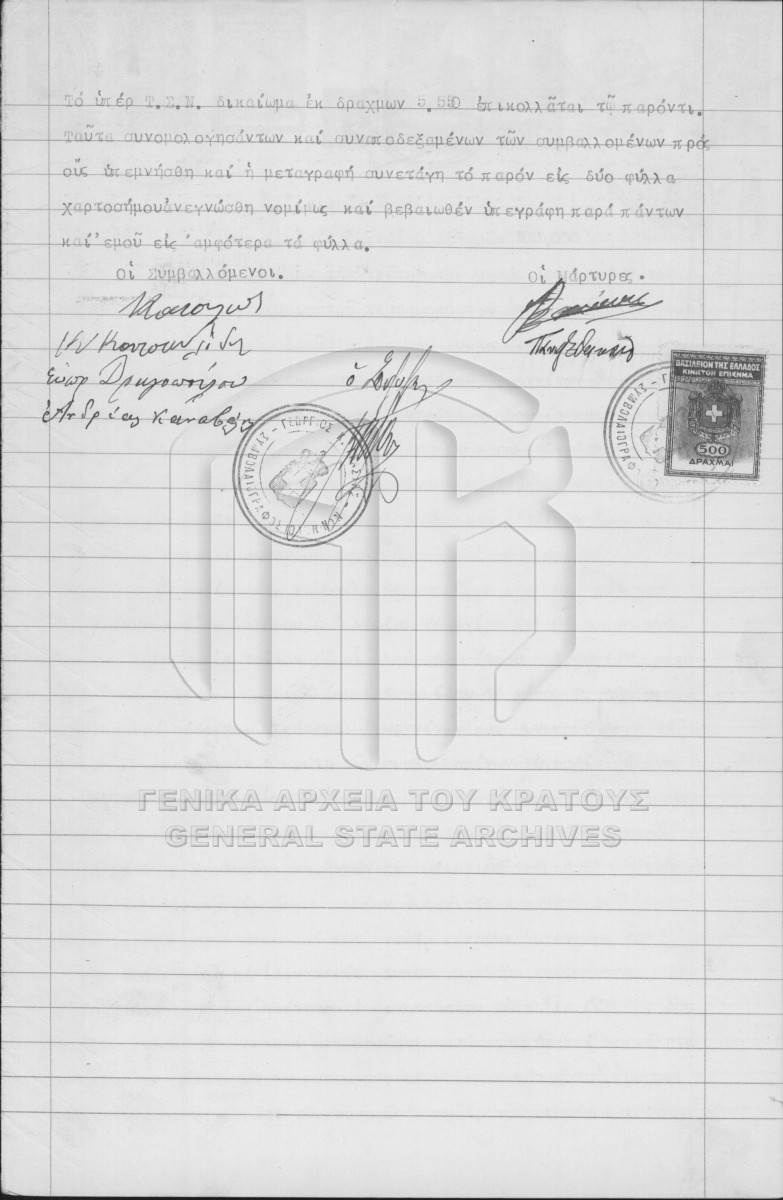 Τό ὑπέρ Τ.Σ.Ν. δικαίωμα ἐκ δραχμων 5.550 ἐπικολλᾶται τῷ παρόντι.
Ταῦτα συνομολογησάντων καί συναποδεξαμένων τῶν συμβαλλομένων πρός
οὕς ὑπεμνήσθη καί ἡ μεταγραφή συνετάγη τό παρόν εἰς δύο φύλλα
χαρτοσήμουἀνεγνώσθη νομίμως καί βεβαιωθέν ὑπεγράφη παρά πάντων
καί ἐμοῦ εἰς ἀμφότερα τά φύλλα.
Οἱ Συμβαλλόμενοι. Οἱ Μάρτυρες.
Ἀνδρέας
ΒΑΣΙΛΕΙΟΝ ΤΗΣ ΕΛΛΑΔΟΣ
ΚΙΝΗΤΟΝ ΕΠΙΣΗΜΑ
500
ΔΡΑΧΜΑΙ
ΣΥΜΒΟΛΑΙΟΓΡΑΦΟΣ ΓΕΩΡΓΙΟΣ
ΣΥΜΒΟΛΑΙΟΓΡΑΦ
ΓΕΝΙΚΑ ΑΡΧΕΙΑ ΤΟΥ ΚΡΑΤΟΥΣ
GENERAL STATE ARCHIVES